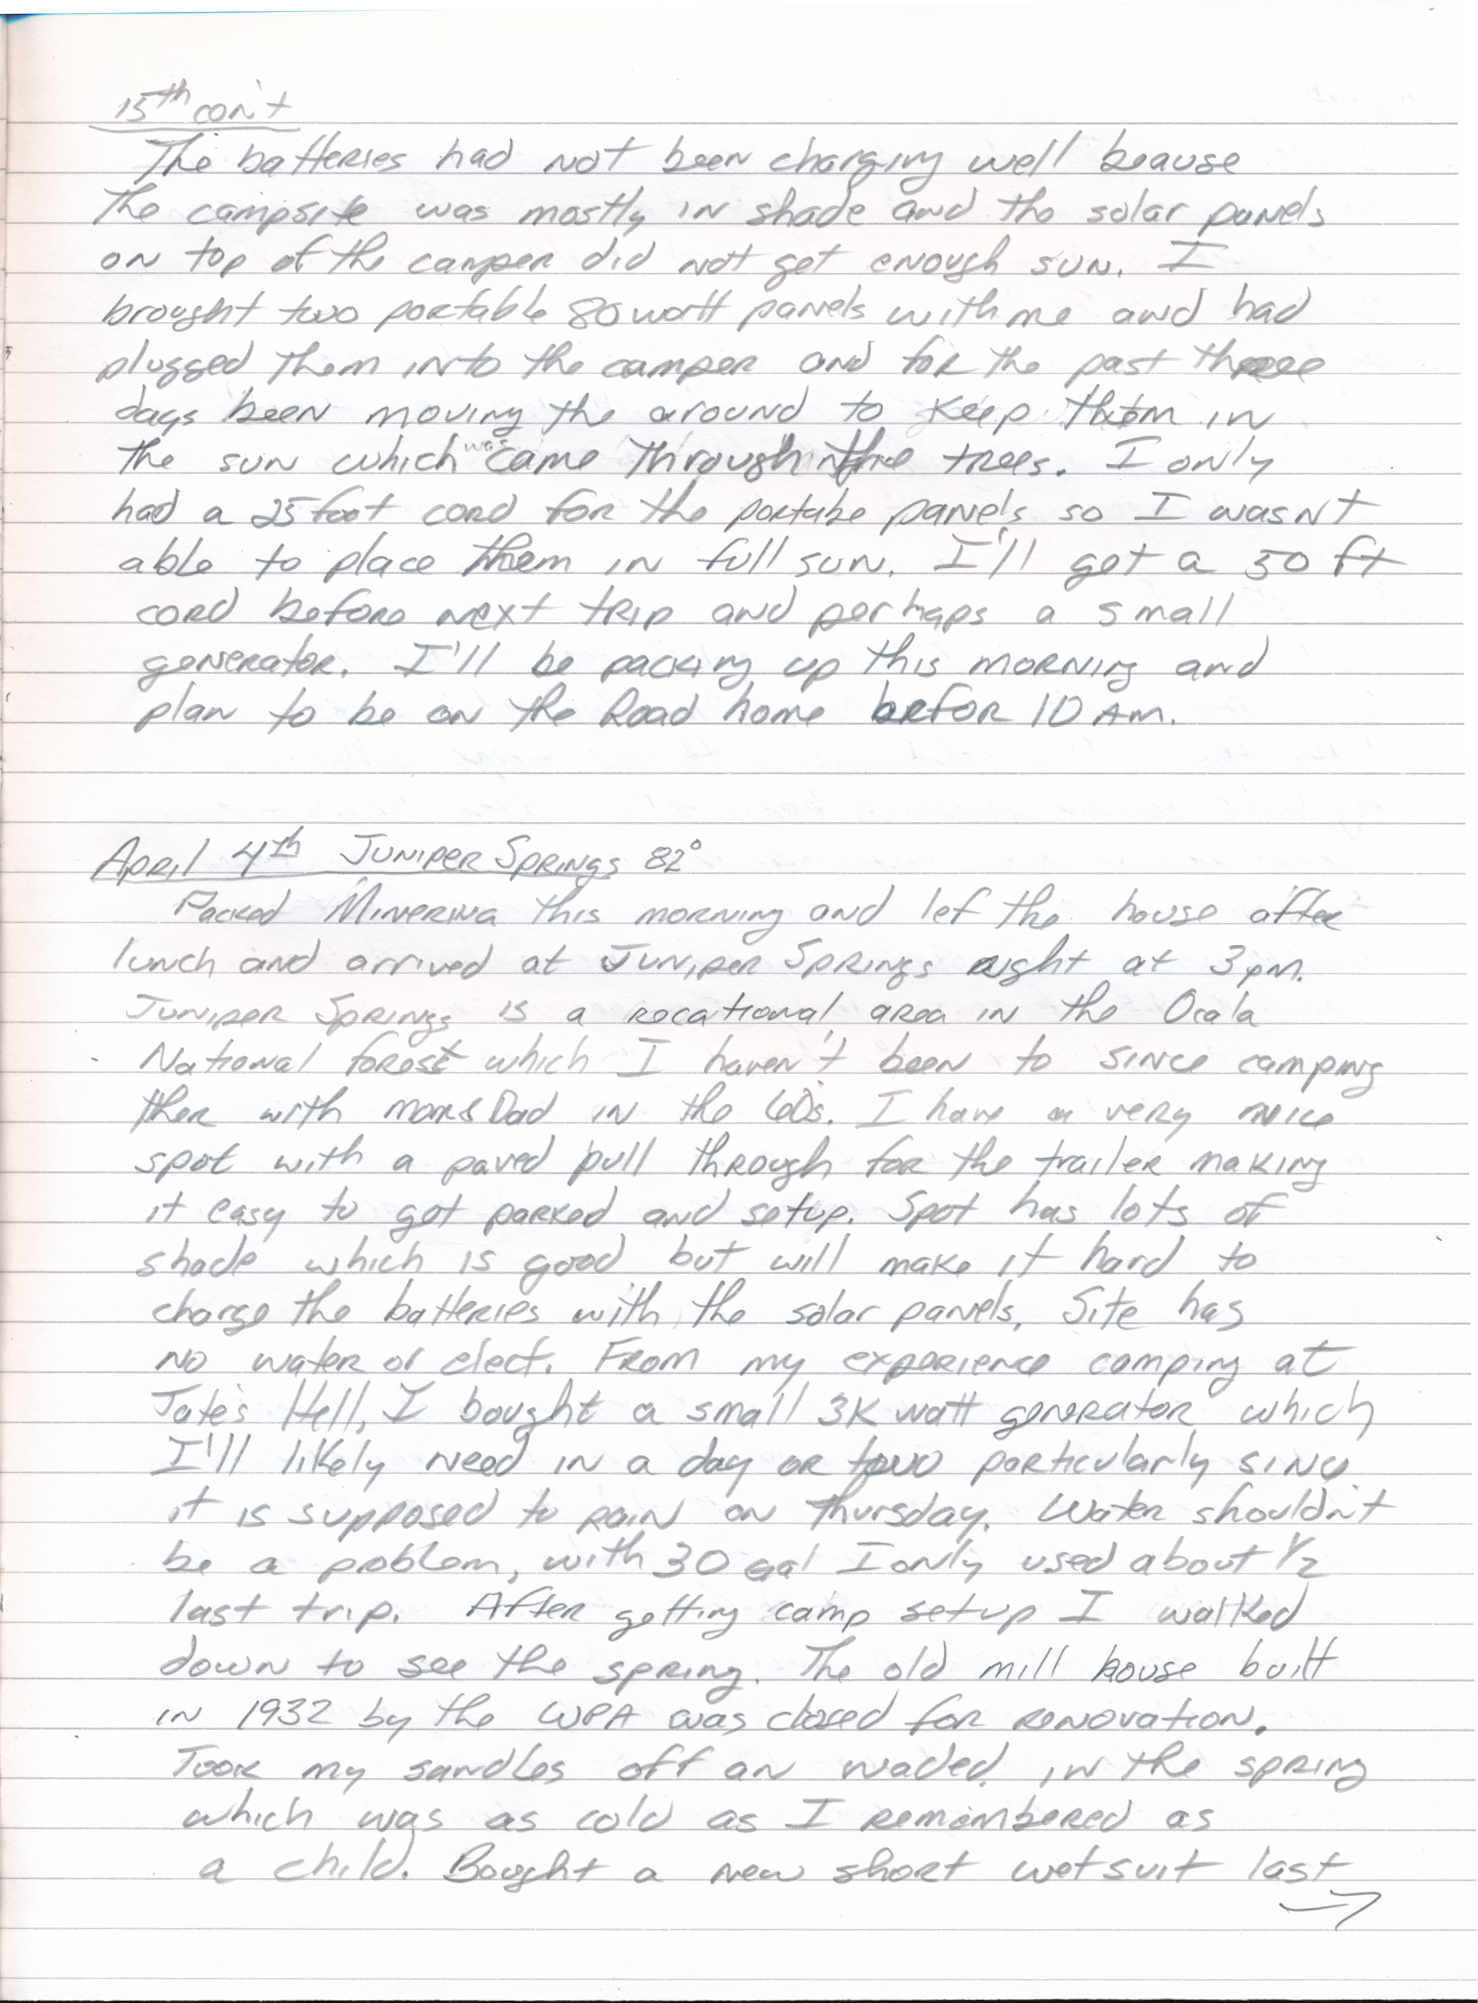 15th con't
The batteries had not been charging well beause
the campsite was mostly in shade and the solar panels
on top of the camper did not get enough sun. I
brought two portable 80 watt panels with me and had
plugged them into the camper and for the past three
days been moving the around to keep them in
the sun which was came through the trees. I only
had a 25 foot cord for the portabe panels so I wasn't
able to place them in full sun. I'll get a 50 ft
cord before next trip and perhaps a small
generator. I'll be packing up this morning and
plan to be on the Road home befor 10 AM.
April 4th Juniper Springs 82°
Packed Minerva this morning and lef the house after
lunch and arrived at Juniper Springs right at 3pm.
Juniper Springs is a recational area in the Ocala
National forest which I haven't been to since camping
ther with mom & Dad in the 60s. I have a very nice
spot with a paved pull through for the trailer making
it easy to get parked and setup. Spot has lots of
shade which is good but will make it hard to
charge the batteries with the solar panels. Site has
no water or elect. From my experience camping at
Tate's Hell, I bought a small 3K watt generator which
I'll likely need in a day or two particularly since
it is supposed to rain on Thursday. Water shouldn't
be a problem, with 30 gal I only used about 1/2
last trip. After getting camp setup I walked
down to see the spring. The old mill house built
in 1932 by the WPA was closed for renovation.
Took my sandles off an waded in the spring
which was as cold as I remembered as
a child. Bought a new short wetsuit last
→